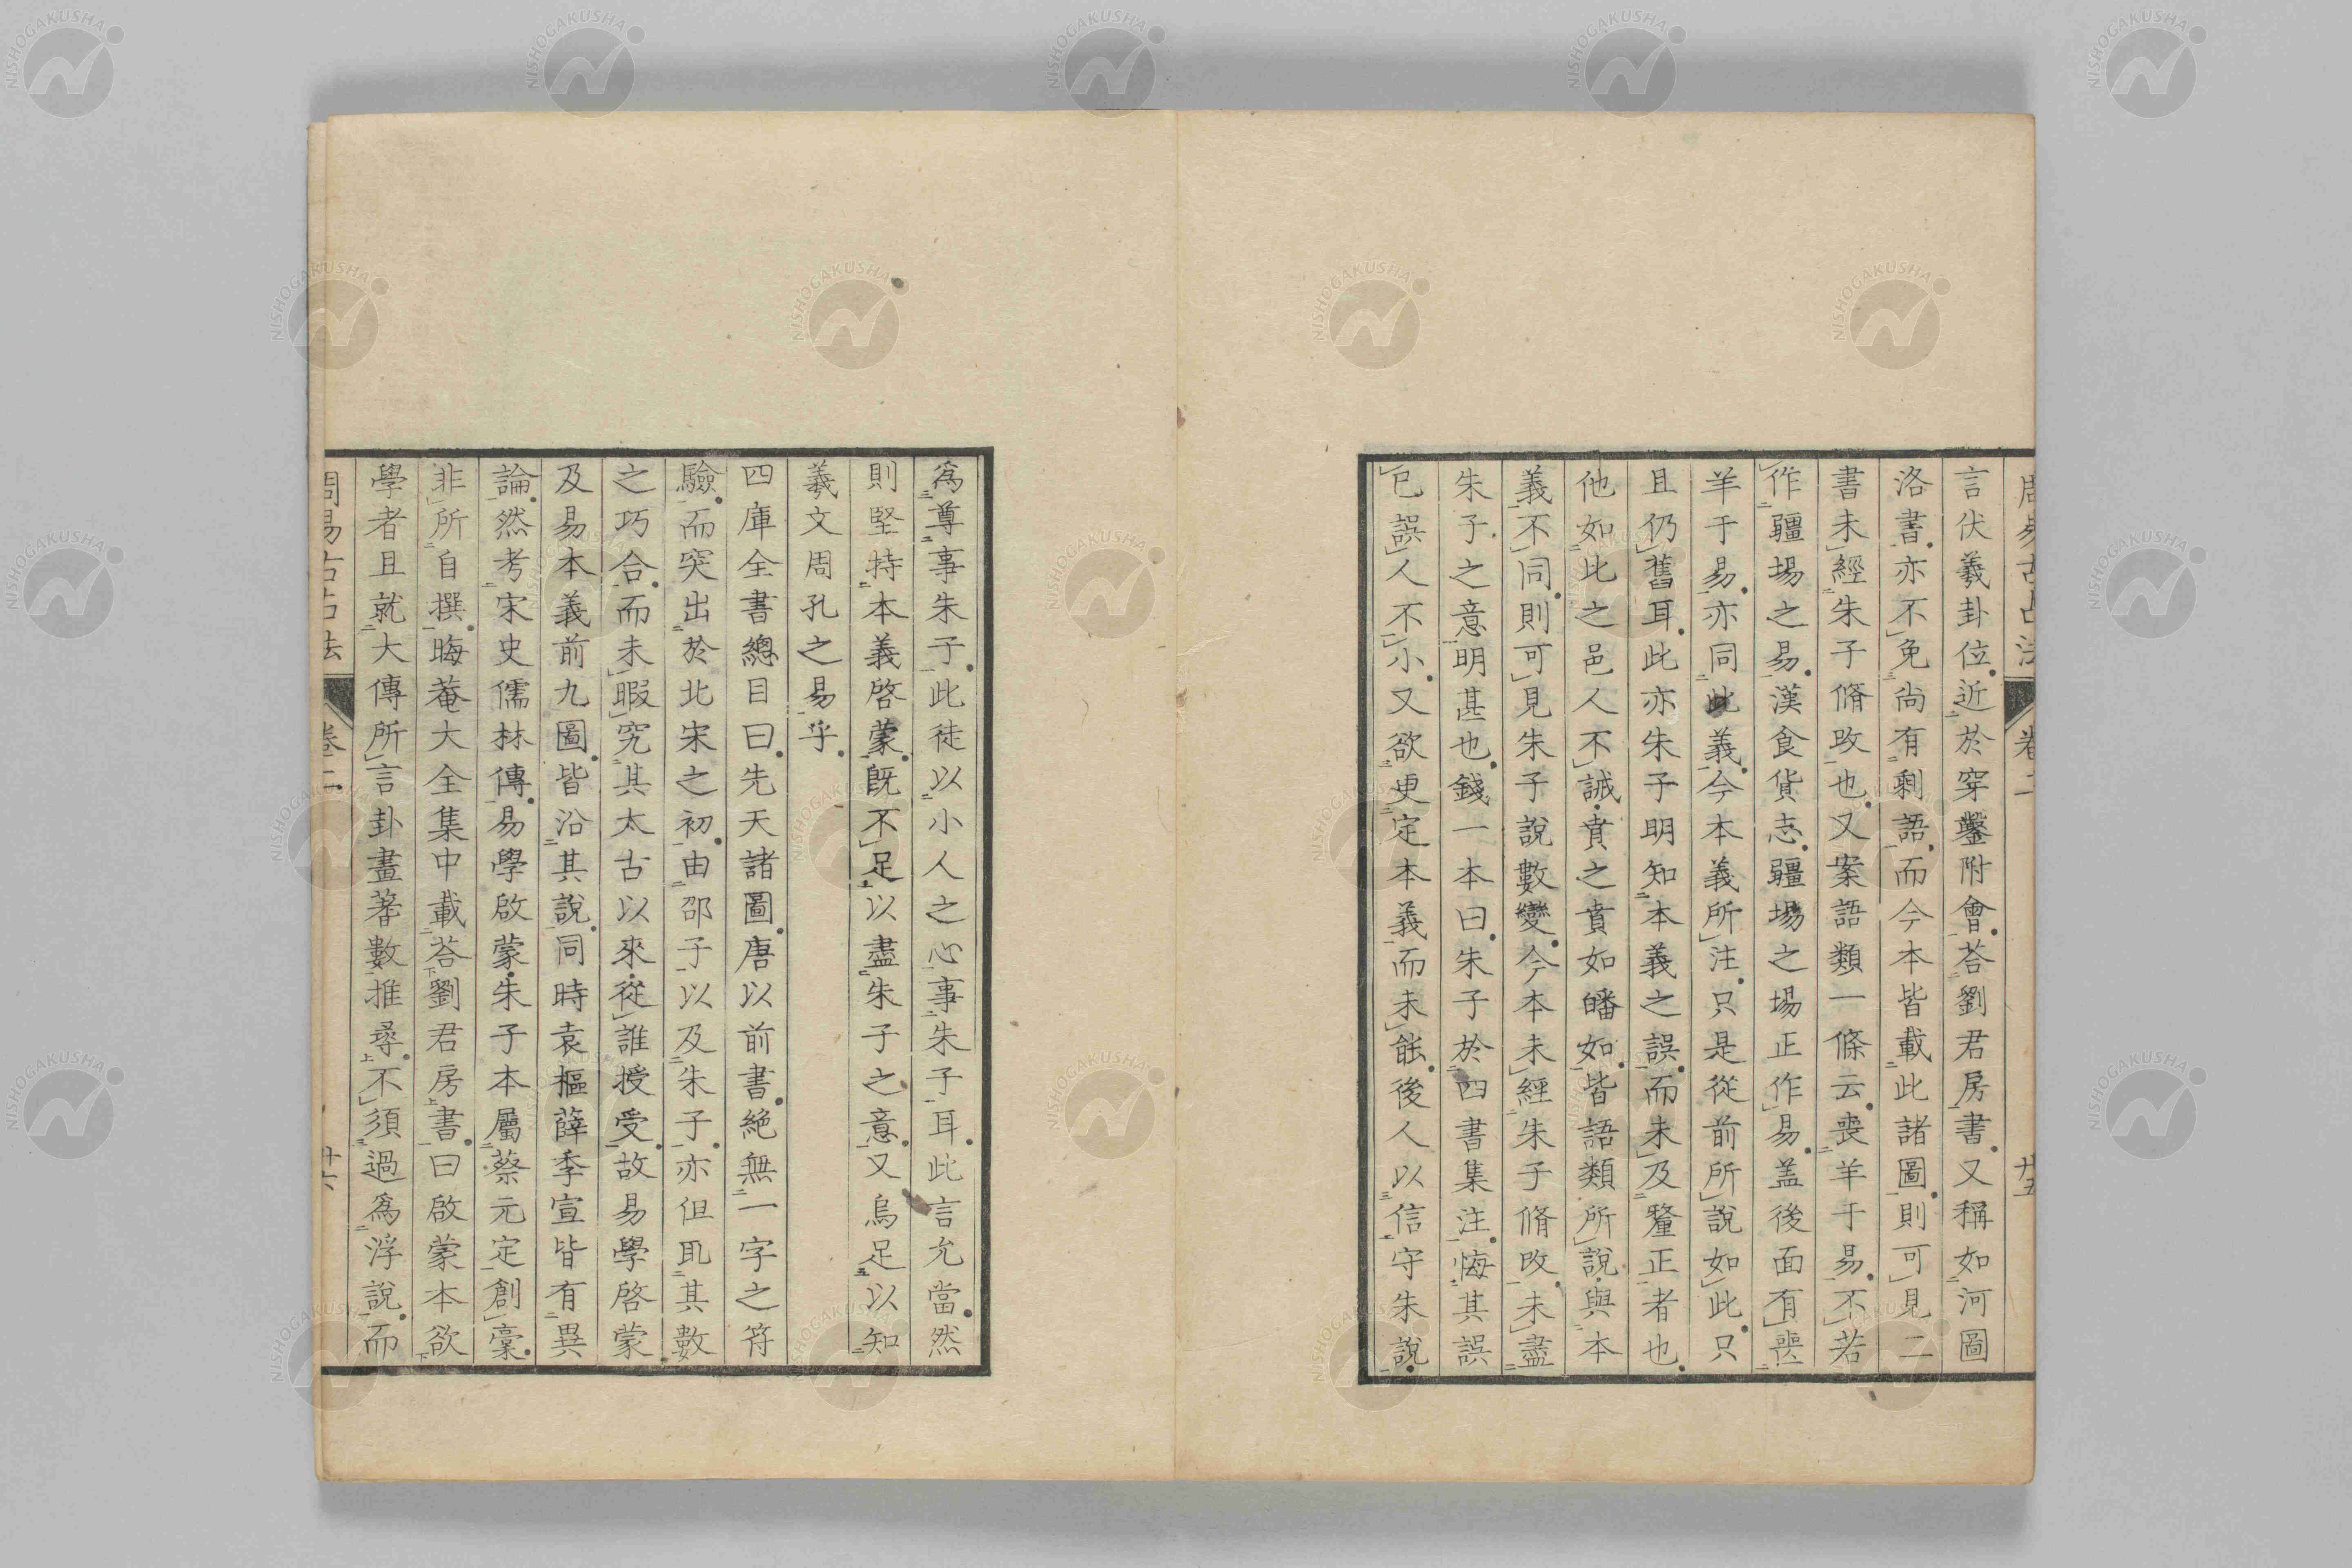 周易古占法 卷二 廿五
言伏羲卦位近於穿鑿附會荅劉君房書又稱如河圖
洛書亦不免尚有剩語而今本皆載此諸圖則可見二
書未經朱子脩改也又案語類一條云喪羊于易不若
作疆場之易漢食貨志疆場之場正作易盖後面有喪
羊于易亦同此義今本義所注只是從前所說如此只
且仍舊耳此亦朱子明知本義之誤而未及釐正者也
他如比之邑人不誡賁之賁如皤如皆語類所說與本
義不同則可見朱子說數變今本未經朱子脩改未盡
朱子之意明甚也錢一本曰朱子於四書集注悔其誤
已誤人不小又欲更定本義而未能後人以信守朱說
為尊事朱子此徒以小人之心事朱子耳此言允當然
則堅特本義啓蒙既不足以盡朱子之意又烏足以知
羲文周孔之易乎
四庫全書總目曰先天諸圖唐以前書絶無一字之符
驗而突出於北宋之初由邵子以及朱子亦但取其數
之巧合而未暇究其太古以來從誰授受故易學啓蒙
及易本義前九圖皆沿其說同時袁樞薛季宣皆有異
論然考宋史儒林傳易學啟蒙朱子本屬蔡元定創稾
非所自撰晦菴大全集中載荅劉君房書曰啟蒙本欲
學者且就大傳所言卦畫蓍數推尋不須過爲浮說而
周易古占法 卷二 廿六
NISHOGAKUSHA